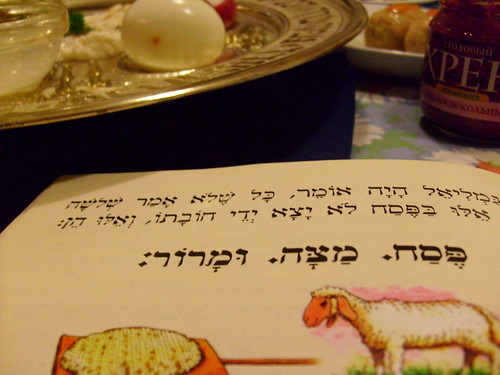 СТОЛОВЫЙ
ХРЕН
גַּמְלִיאֵל הָיָה אוֹמֵר, כָּל שֶׁלֹּא אָמַר שְׁלֹשָׁה
אֵלּוּ בַּפֶּסַח לֹא יָצָא יְדֵי חוֹבָתוֹ, וְאֵלּוּ הֵן:
פֶּסַח. מַצָּה. וּמָרוֹר: